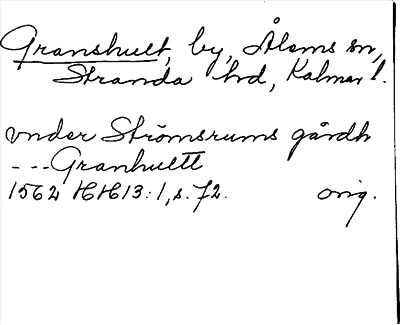 Granshult, by, Ålems sn,
Stranda hd, Kalmar l.
vnder Strömsrums gårdh
---Granhultt
1562 HH 13:1, s. 72. orig.